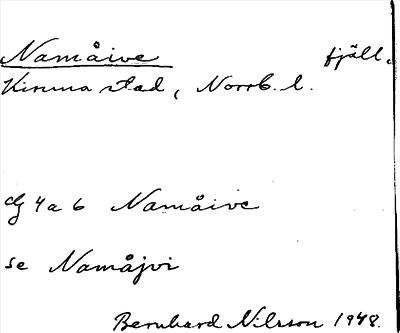 Namåive fjäll.
Kiruna stad, Norrb. l.
4 a 6 Namåive
se Namåjvi
Bernhard Nilsson 1948.